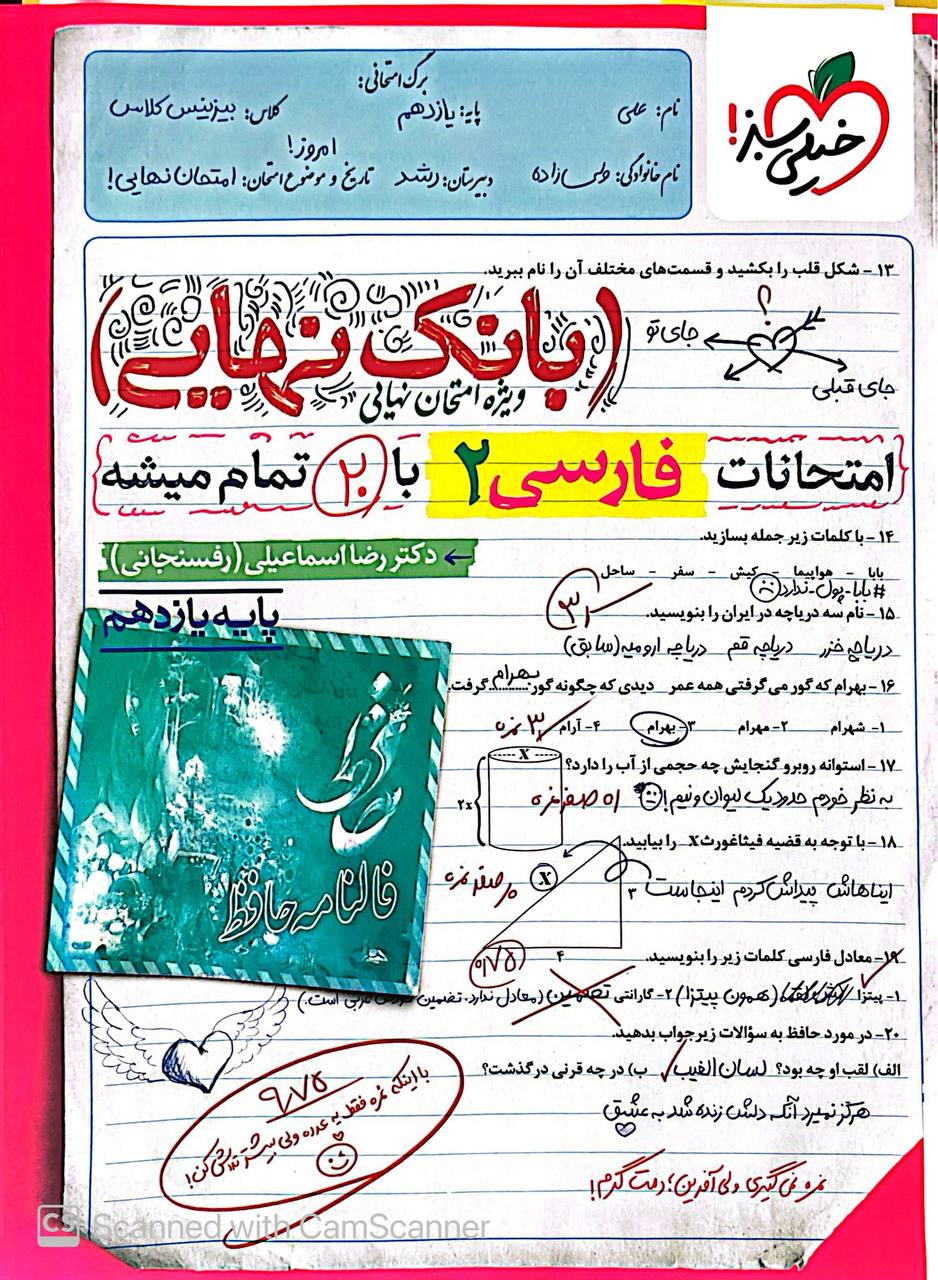 خیلی سبز!
برگ امتحانی:
نام: علی
پایه: یازدهم
کلاس: بیزینس کلاس
نام خانوادگی: ولی زاده
دبیرستان: رشد
تاریخ و موضوع امتحان: امتحان نهایی!
امروز!
۱۳- شکل قلب را بکشید و قسمت‌های مختلف آن را نام ببرید.
؟
جای تو
جای قبلی
(بانک نهایی)
ویژه امتحان نهایی
{امتحانات فارسی ۲ با ۲۰ تمام میشه}
۱۴- با کلمات زیر جمله بسازید.
← دکتر رضا اسماعیلی (رفسنجانی)
بابا - هواپیما - کیش - سفر - ساحل
#بابا-پول-ندارد
پایه یازدهم
۱۵- نام سه دریاچه در ایران را بنویسید.
دریاچه خزر دریاچه قم دریاچه ارومیه (سابق)
۱۶- بهرام که گور می‌گرفتی همه عمر دیدی که چگونه گور بهرام گرفت.
۱- شهرام ۲- مهرام ۳- بهرام ۴- آرام
۱۷- استوانه روبرو گنجایش چه حجمی از آب را دارد؟
X
۲x
به نظر خودم حدود یک لیوان و نیم!
۱۸- با توجه به قضیه فیثاغورث X را بیابید.
ایناهاش پیداش کردم اینجاست
X
۳
۴
صفر نمره
فالنامه حافظ
۱۹- معادل فارسی کلمات زیر را بنویسید.
۰/۷۵
۱- پیتزا (همون پیتزا) ۲- گارانتی تضمین (معادل ندارد. تضمین خودش عربی است.)
۲۰- در مورد حافظ به سؤالات زیر جواب بدهید.
الف) لقب او چه بود؟ لسان الغیب ب) در چه قرنی درگذشت؟
هرگز نمیرد آنکه دلش زنده شد به عشق
۹/۷۵
با اینکه نمره فقط یه عدده ولی بیشتر تلاش کن!
نمره نمی‌گیری ولی آفرین؛ دمت گرم!
CS Scanned with CamScanner